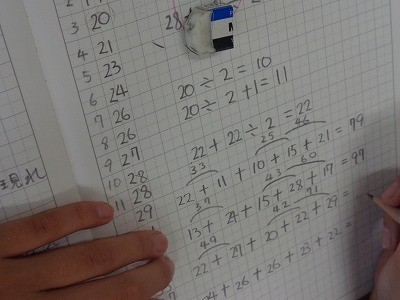 3 20
4 21
5 23
6 24
7 26
8 26
9 27
10 28
11 28
29
28
20÷2=10
20÷2+1=11
22+22÷2=22
33 25 46
22+11+10+15+21=79
37 43 60
13+24+15+28+17=97
49 42 91
22+27+20+22+29=
24+26+26+23+22=